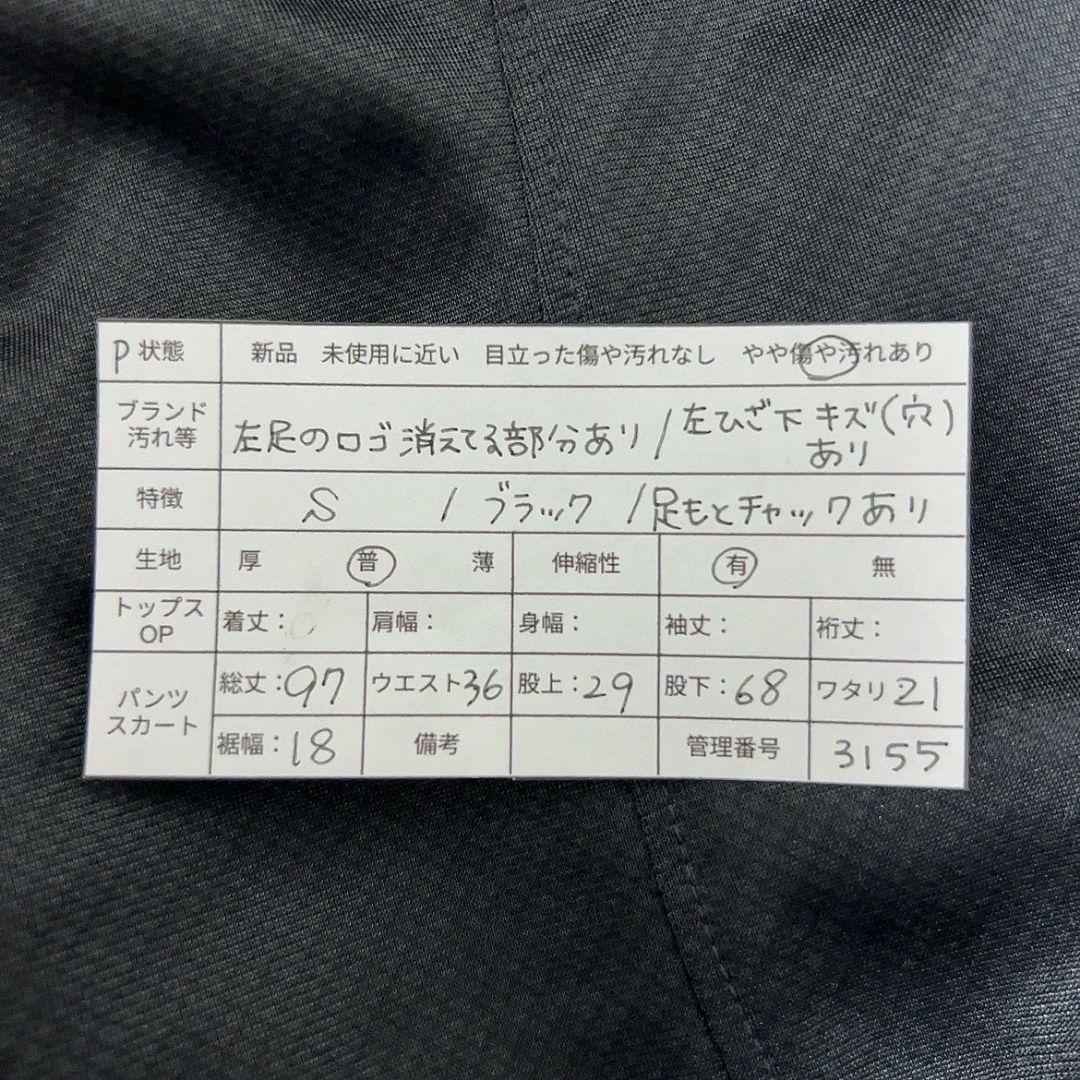 P 状態 新品 未使用に近い 目立った傷や汚れなし やや傷や汚れあり
ブランド 汚れ等 左足のロゴ消えてる部分あり / 左ひざ下キズ(穴)あり
特徴 S / ブラック / 足もとチャックあり
生地 厚 普 薄 伸縮性 有 無
トップス OP 着丈: 肩幅: 身幅: 袖丈: 裄丈:
パンツ スカート 総丈:97 ウエスト36 股上:29 股下:68 ワタリ21
裾幅:18 備考 管理番号 3155